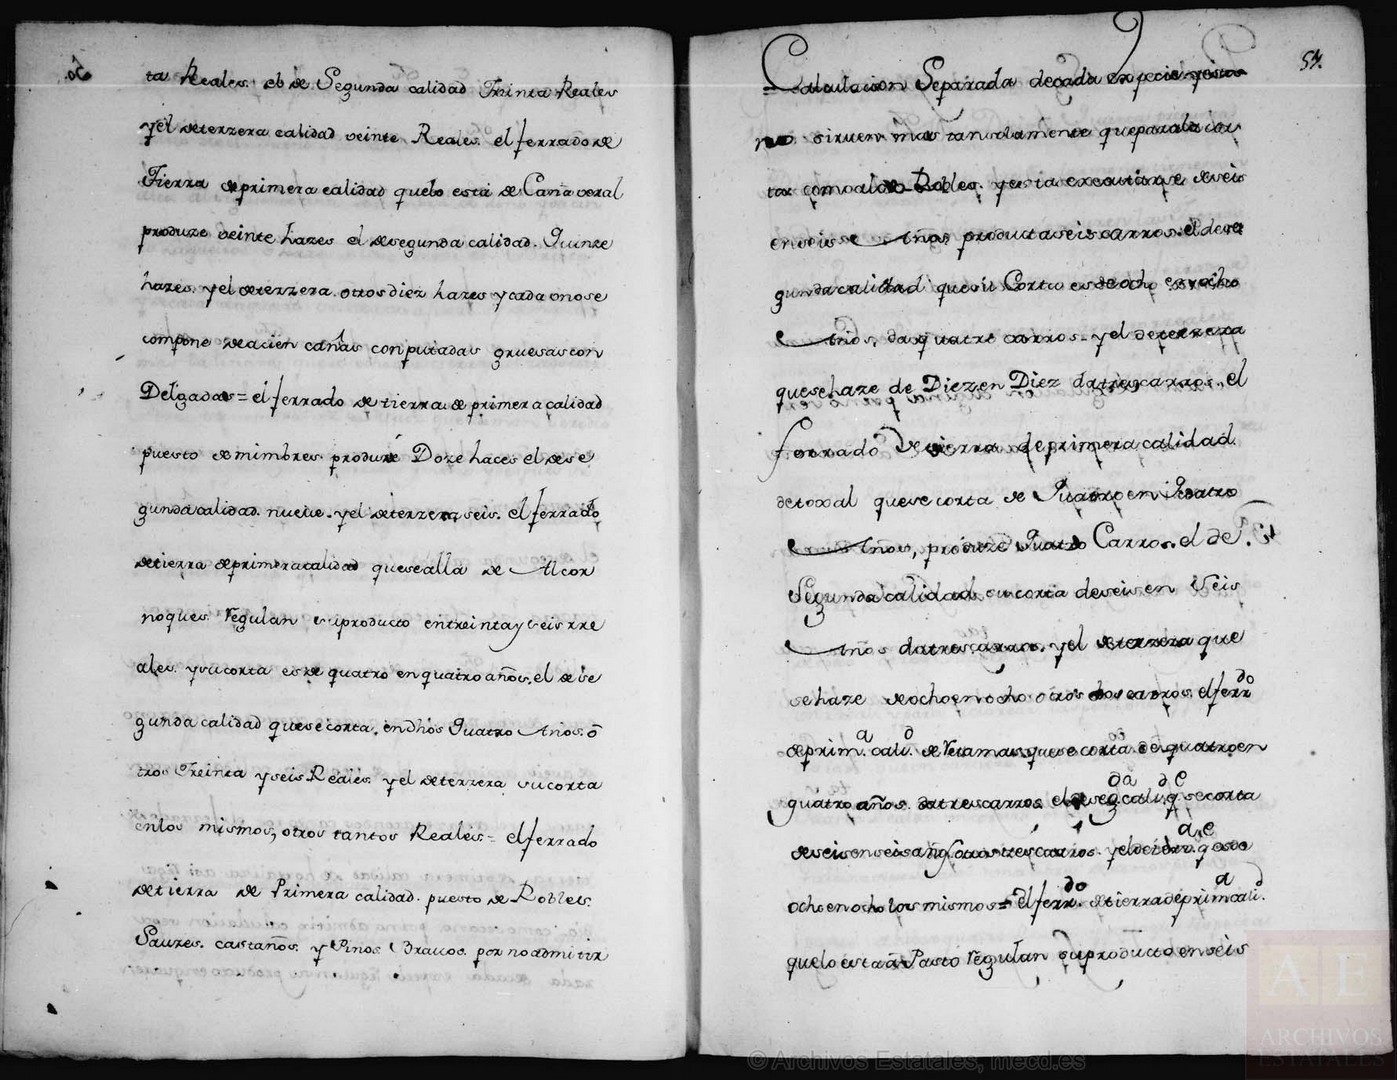 50.
ta Reales. el de Segunda calidad Treinta Reales
y el deterzera calidad veinte Reales. el ferrado de
Tierra deprimera calidad quelo está de Caña veral
produze veinte hazes el desegunda calidad. Quinze
hazes. y el deterzera. otros diez hazes y cada uno se
compone deacien cañas computadas gruesas con
Delgadas = el ferrado de tierra de primera calidad
puesto demimbres. produze Doze haces el dese
gunda calidad. nueve. y el deterzera, seis. el ferrado
detierra deprimera calidad quesealla de Alcor
noques. regulan suproducto entreinta y seis rre
ales. y su corta es de quatro en quatro años, el de se
gunda calidad que se corta. en dhos Quatro Años. o
tros Treinta y seis Reales. y el deterzera su corta
en los mismos, otros tantos Reales = el ferrado
detierra de Primera calidad. puesto de Robles.
Sauzes. castaños. y Pinos Bravos. por no admitir
51.
Calculacion Separada decada especie y esta
no siruen mas tansolamente que para la cor
ta como a los Robles. y esta executarse de seis
en seis Años producta seis carros. el dese
gunda calidad que su Corta es de ocho en ocho
Años, da quatro carros = y el deterzera
que se haze de Diez en Diez da tres carros., el
ferrado De tierra deprimera calidad.
detoxal que se corta de Quatro en Quatro
Años, produze Quatro Carros. el de
Segunda calidad su corta de seis en Seis
Años da tres carros. y el deterzera que
se haze de ocho en ocho otros dos carros. el ferrdo
de prim.a cali.d de Retamas que se corta de quatro en
quatro años. da tres carros. el de segda cali.de q. se corta
de seis en seis años otros tres carros. y el de terz.a q.e es de
ocho en ocho los mismos = El ferr.do de tierra de prim.a cali.d
que lo esta a Pasto regulan su producto en seis
© Archivos Estatales, mecd.es
AE
ARCHIVOS
ESTATALES